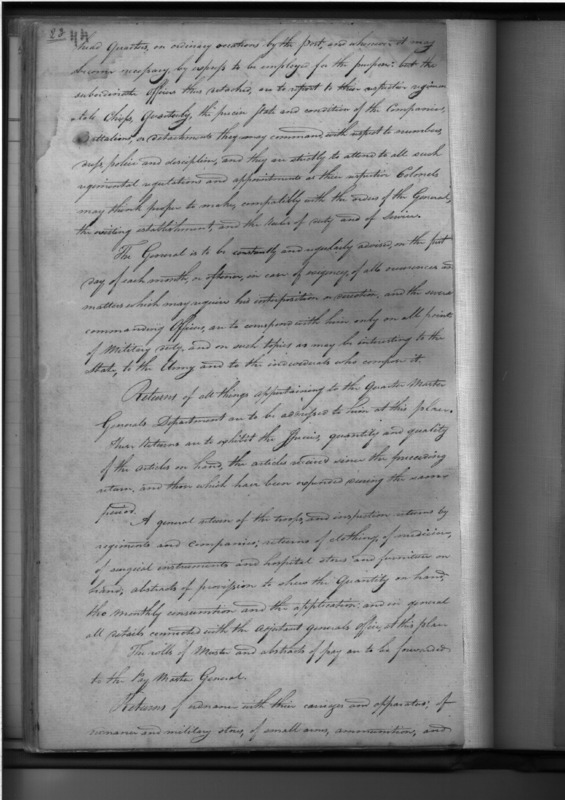 23 44
head Quarters, on ordinary occations by the post, and whenever it may
become necessary, by express to be employed for the purpose: but the
subordinate Officers thus detached, are to report to their respective regimen
tal Chiefs, Quarterly, the precise state and condition of the Companies,
Battalions, or detachments they may command, with respect to numbers,
dress, police and discipline, and they are strictly to attend to all such
regimental regulations and appointments as their respective Colonels
may think proper to make, compatibly with the orders of the General,
the existing establishment, and the Rules of duty and of Service.
The General is to be constantly and regularly advised, on the first
day of each month, or oftener, in case of exigency, of all occurrences and
matters which may require his interposition or direction, and the several
commanding Officers, are to correspond with him only on all points
of Military duty, and on such topics as may be interesting to the
State, to the Army and to the individuals who compose it.
Returns of all things appertaining to the Quarter Master
Generals Department are to be addressed to him at this place.
These Returns are to exhibit the Species, quantity and quality
of the articles on hand, the articles received since the preceeding
return, and those which have been expended during the same
period.
A general return of the troops, and inspection returns by
regiments and companies; returns of clothing, of medicine,
of surgical instruments and hospital stores and furniture on
hand, abstracts of provission to shew the Quantity on hand,
the monthly consumtion and the application; and in general
all details connected with the Adjutant Generals Office, at this place
The rolls of Muster and abstracts of pay are to be forwarded
to the Pay Master General.
Returns of ordnance with their carriages and apparatus; of
ordnance and military stores, of small arms, ammunition, and